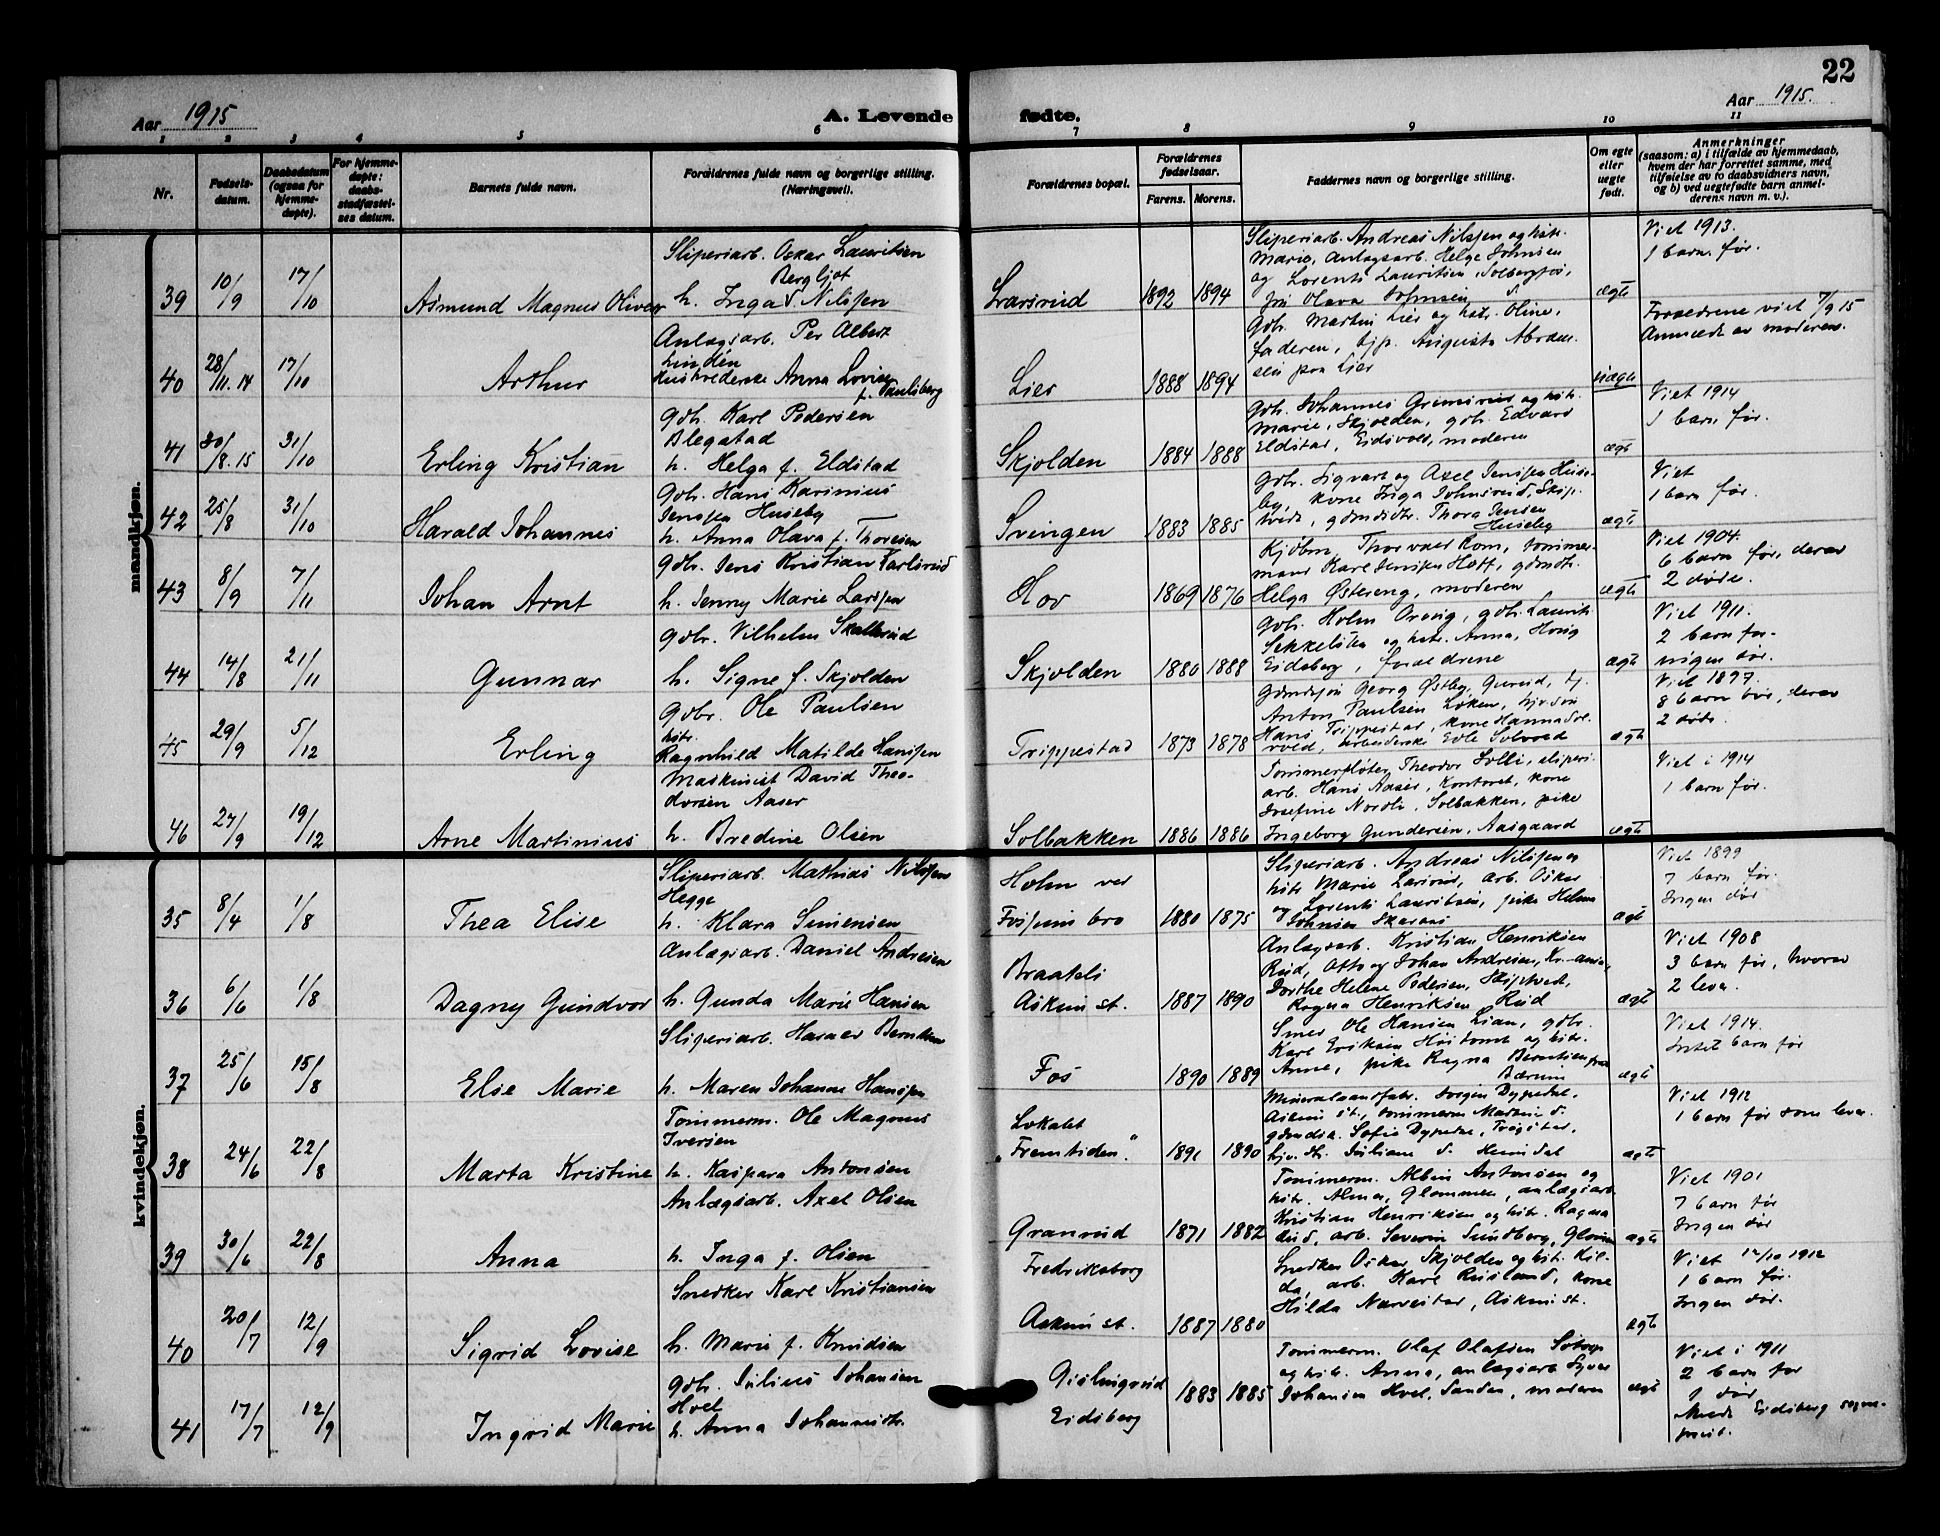 22
Aar 1915
A. Levende fødte.
Aar 1915.
1 2 3 4 5 6 7 8 9 10 11
Nr.
Fødsels-
datum.
Daabsdatum
(ogsaa for
hjemme-
døpte).
For hjemme-
døpte:
daabs-
stadfæstel-
ses datum.
Barnets fulde navn.
Forældrenes fulde navn og borgerlige stilling.
(Næringsvei).
Forældrenes bopæl.
Forældrenes
fødselsaar.
Farens. Morens.
Faddernes navn og borgerlige stilling.
Om egte
eller
uegte
født.
Anmerkninger
(saasom: a) i tilfælde av hjemmedaab,
hvem der har forrettet samme, med
tilføielse av to daabsvidners navn,
og b) ved uegtefødte barn anmel-
derens navn m. v.).
mandkjøn.
39 10/9 17/10 Asmund Magnus Oliver
Sliperiarb. Oskar Lauritsen
Bergljot
h. Inga Nilssen
1892 1894
Sliperiarb. Andreas Nilssen og hstr.
Marie, Anlægsarb. Helge Johnsen
og Lorents Lauritsen, Solbergfos,
frk Olava Johnsen
ægte
Viet 1913.
1 barn før.
40 28/11.14 17/10 Arthur
Anlægsarb. Per Albert
Lindén
Anna Lovise
f. Paulsberg
Lier 1888 1894
Gdb. Martin Lier og hstr. Oline,
faderen, Augusta Abram-
sen fra Lier
uægte
Forældrene viet 7/9 15
Anmeldt av moderen.
41 30/8.15 31/10 Erling Kristian
Gdb. Karl Pedersen
Blegstad
h. Helga f. Eldstad
Skjolden 1884 1888
Gdb. Johannes Grimsrud og hstr.
Marie, Skjolden, gdb. Edvard
Eldstad, Eidsvold, moderen
ægte
Viet 1914
1 barn før.
42 25/8 31/10 Harald Johannes
Gdb. Hans Karinius
Jenssen Huseby
h. Anna Olava f. Thoresen
Svingen 1883 1885
Gdb. Sigvart og Axel Jenssen Huse-
by, kone Inga Johnsrud, Skip-
tvedt, gdmdtr. Thora Jensen
Huseby
ægte
Viet
1 barn før.
43 8/9 7/11 Johan Arnt
Gdb. Jens Kristian Karlsrud
h. Jenny Marie Larssen
Hov 1869 1876
Kjøbm. Thorvald Rom, tømmer-
mand Karl Jenssen Hoff, gdmdtr.
Helga Østereng, moderen
ægte
Viet 1904.
6 barn før, derav
2 døde.
44 14/8 21/11 Gunnar
Gdbr. Vilhelm Skallerud
h. Signe f. Skjolden
Skjolden 1880 1888
Gdb. Holm Orvig, gdb. Laurits
Sekkelsten og hstr. Anna,
Eidsberg, forældrene
ægte
Viet 1911.
2 barn før
ingen død.
45 29/9 5/12 Erling
Gdbr. Ole Paulsen
hstr.
Ragnhild Matilde Hanssen
Trippestad 1873 1878
Gdmdssøn Georg Østby, Gurud, tj.
Anton Paulsen Løken,
Hans Trippestad, kone Hanna Sol-
vold, arbeiderske Edle Solvold
ægte
Viet 1897.
8 barn før, derav
2 døde.
46 27/9 19/12 Arne Martinius
Maskinist David Theo-
dorsen Aaser
h. Bredine Olsen
Solbakken 1886 1886
Tømmerfløter Theodor Solli, sliperi-
arb. Hans Aaser, Kontoret, kone
Josefine Nordli, Solbakken, pike
Ingeborg Gundersen, Aasgaard
ægte
Viet i 1914
1 barn før.
kvindekjøn.
35 8/4 1/8 Thea Elise
Sliperiarb. Mathias Nilssen
Hegge
h. Klara Simensen
Holm ved
Fossum bro 1880 1875
Sliperiarb. Andreas Nilssen og
hstr Marie Larsrud, arb. Oskar
og Lorents Lauritsen, pike Helene
Johnsen
ægte
Viet 1899
7 barn før.
Ingen død
36 6/6 1/8 Dagny Gundvor
Anlægsarb. Daniel Andresen
h. Gunda Marie Hansen
Braateli
Askim st. 1887 1890
Anlægsarb. Kristian Henriksen
Rud, Otto og Johan Andresen, Kr.-ania,
Dorthe Helene Pedersen, Skiptvedt,
Ragna Henriksen Rud
ægte
Viet 1908
3 barn før, hvorav
2 lever.
37 25/6 15/8 Else Marie
Sliperiarb. Harald Berntsen
h. Maren Johanne Hanssen
Fos 1890 1889
Smed Ole Hansen Lian, gdbr.
Karl Eriksen Høitomt og hstr.
Anne, pike Ragna Berntsen fra
Bærum
ægte
Viet 1914.
Intet barn før
38 24/6 22/8 Marta Kristine
Tømmerm. Ole Magnus
Iversen
h. Kaspara Antonsen
Lokalet
„Fremtiden." 1891 1890
Jørgen Dypedal,
Askim st., tømmerm
Sofie Dypedal, Trøgstad,
ægte
Viet 1912
1 barn før som lever.
39 30/6 22/8 Anna
Anlægsarb. Axel Olsen
h. Inga f. Olsen
Granrud 1871 1882
Tømmerm. Albin Antonsen og
hstr. Alma, Glommen, anlægsarb.
Kristian Henriksen og hstr. Ragna
Rud, arb. Severin Sundberg, Glommen
ægte
Viet 1901
7 barn før
Ingen død
40 20/7 12/9 Sigrid Lovise
Snedker Karl Kristiansen
h. Marie f. Knudsen
Fredriksborg
Askim st. 1887 1880
Snedker Oskar Skjolden og hstr. Hil-
da, arb. Karl Rusland, kone
Hilda Narvestad, Askim st.
ægte
Viet 12/10 1912
1 barn før.
Ingen død.
41 17/7 12/9 Ingrid Marie
Gdb. Julius Johansen
Hvel
h. Anna Johannesdtr.
Gislingrud
Eidsberg 1883 1885
Tømmerm. Olaf Olafsen Sotorp
og hstr. Anna, anlægsarb Syver
Johansen Hvel, Sanden, moderen
ægte
Viet i 1911
2 barn før
1 død
Eidsberg sogne-